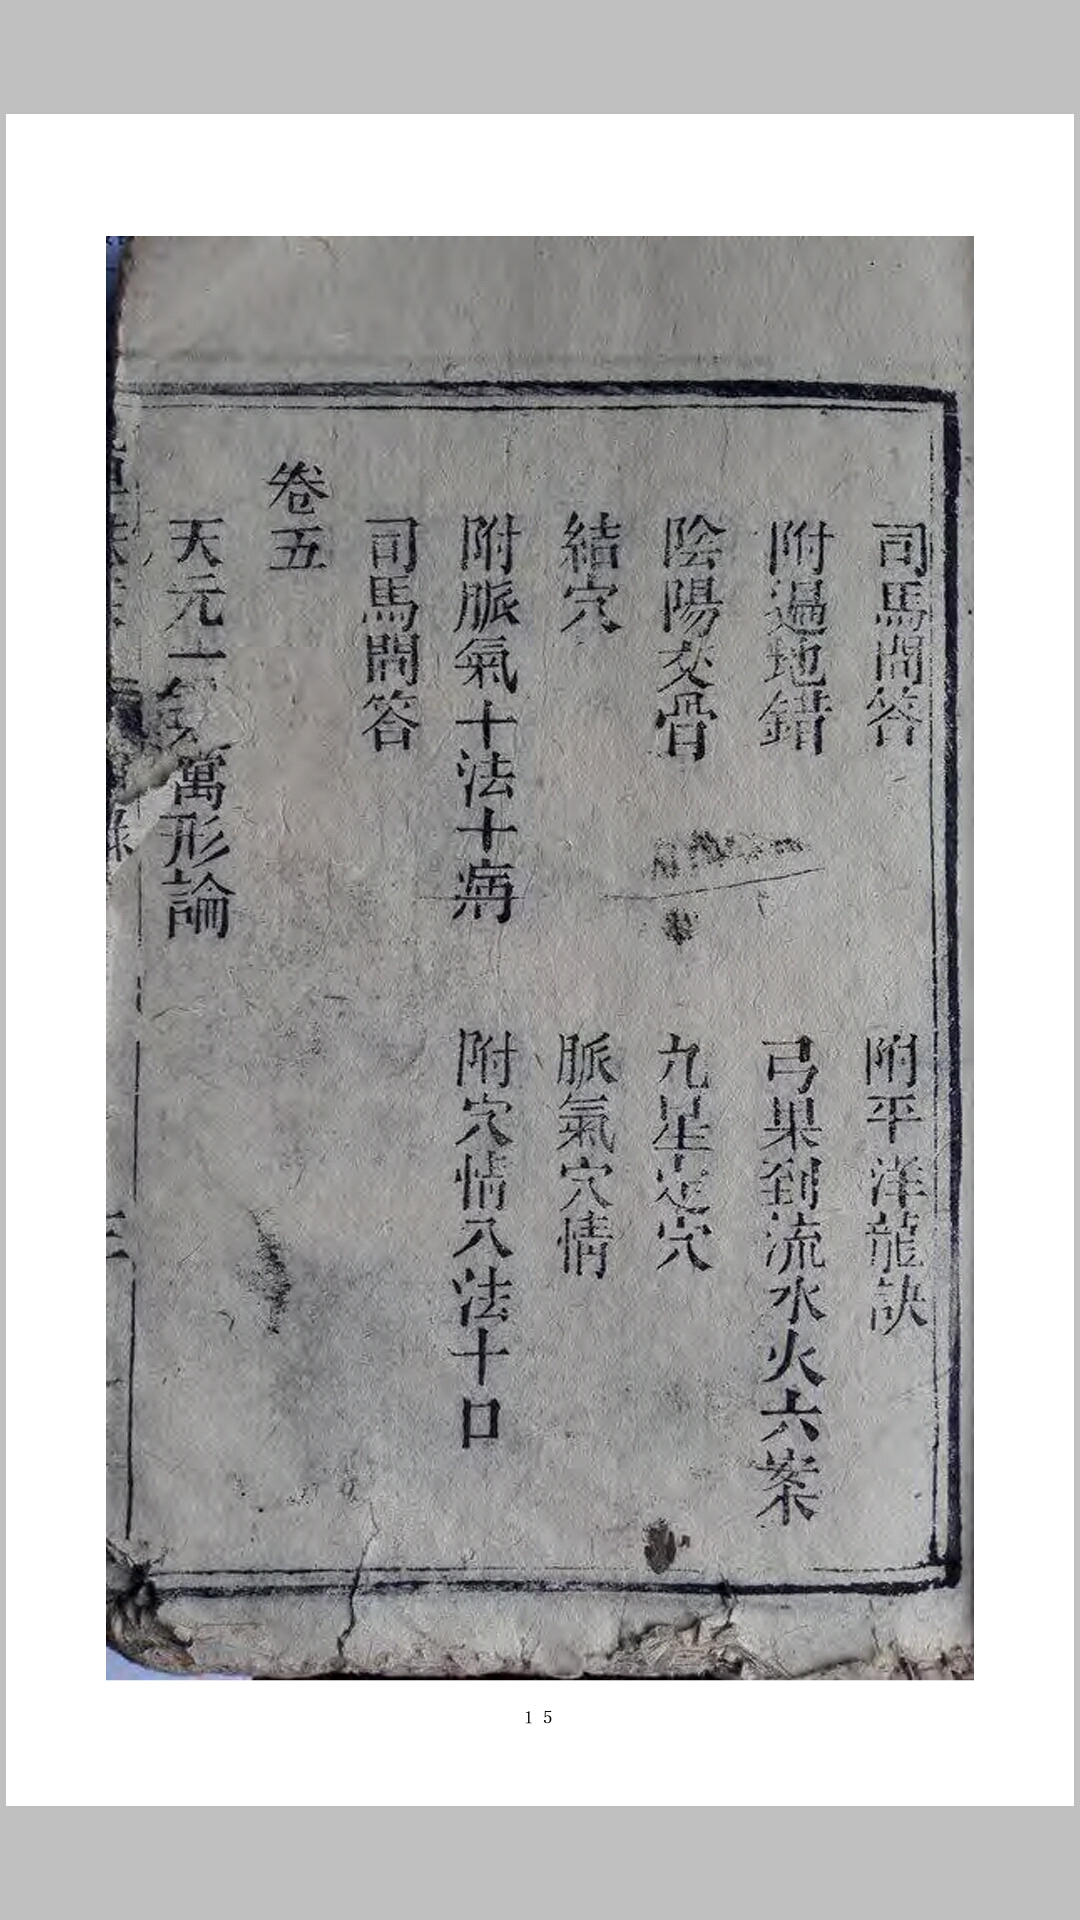 司馬問答 附平洋龍訣
附過地錯 弓果到流水火六案
陰陽交骨 九星定穴
結穴 脈氣穴情
附脈氣十法十病 附穴情八法十口
司馬問答
卷五
天元一氣萬形論
三
15